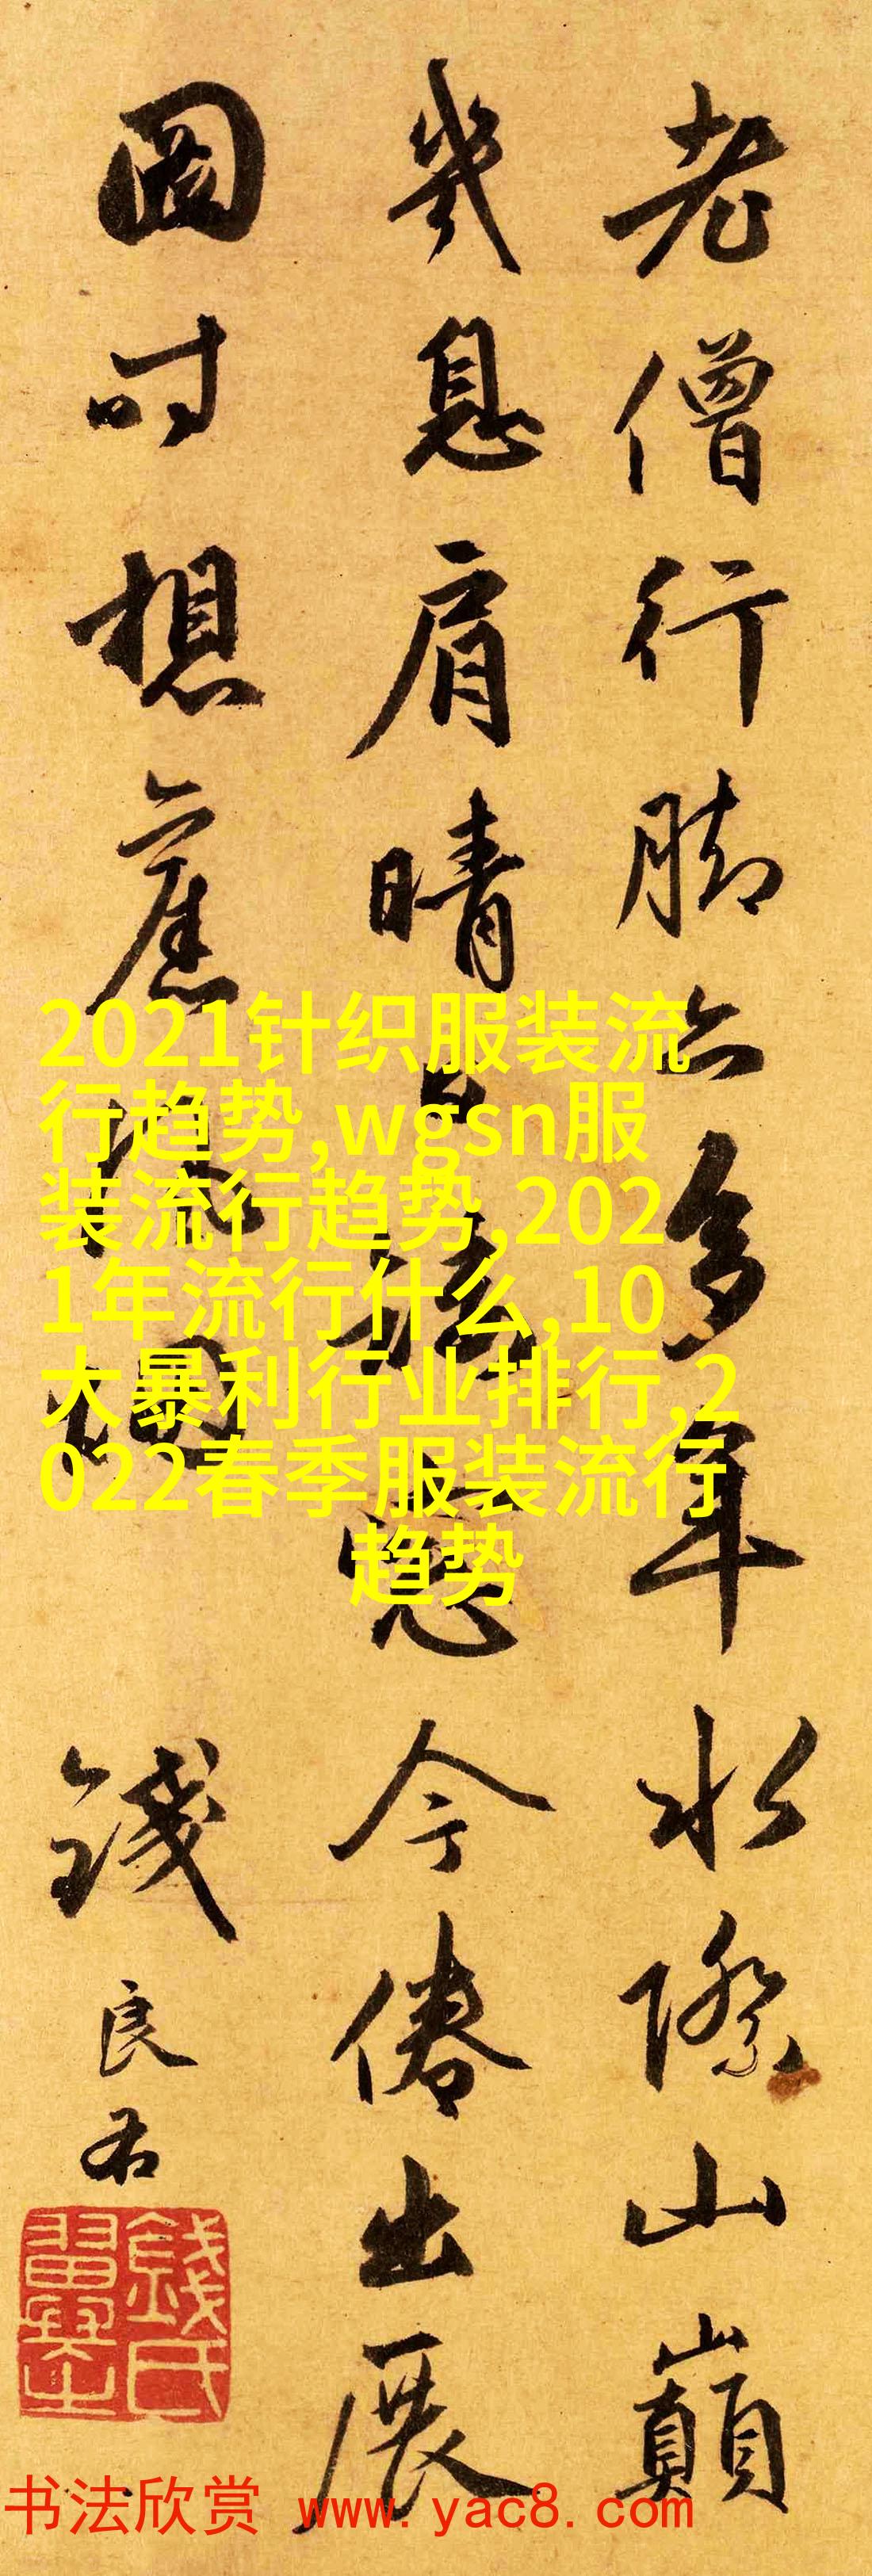 老僧行脚多年水際山巔
幾息肩晴日窓今倦出展
圖时想舊
錢良右
錢氏
翼之
2021针织服装流
行趋势,wgsn服
装流行趋势,202
1年流行什么,10
大暴利行业排行,2
022春季服装流行
趋势
书法欣赏 www.yac8.com